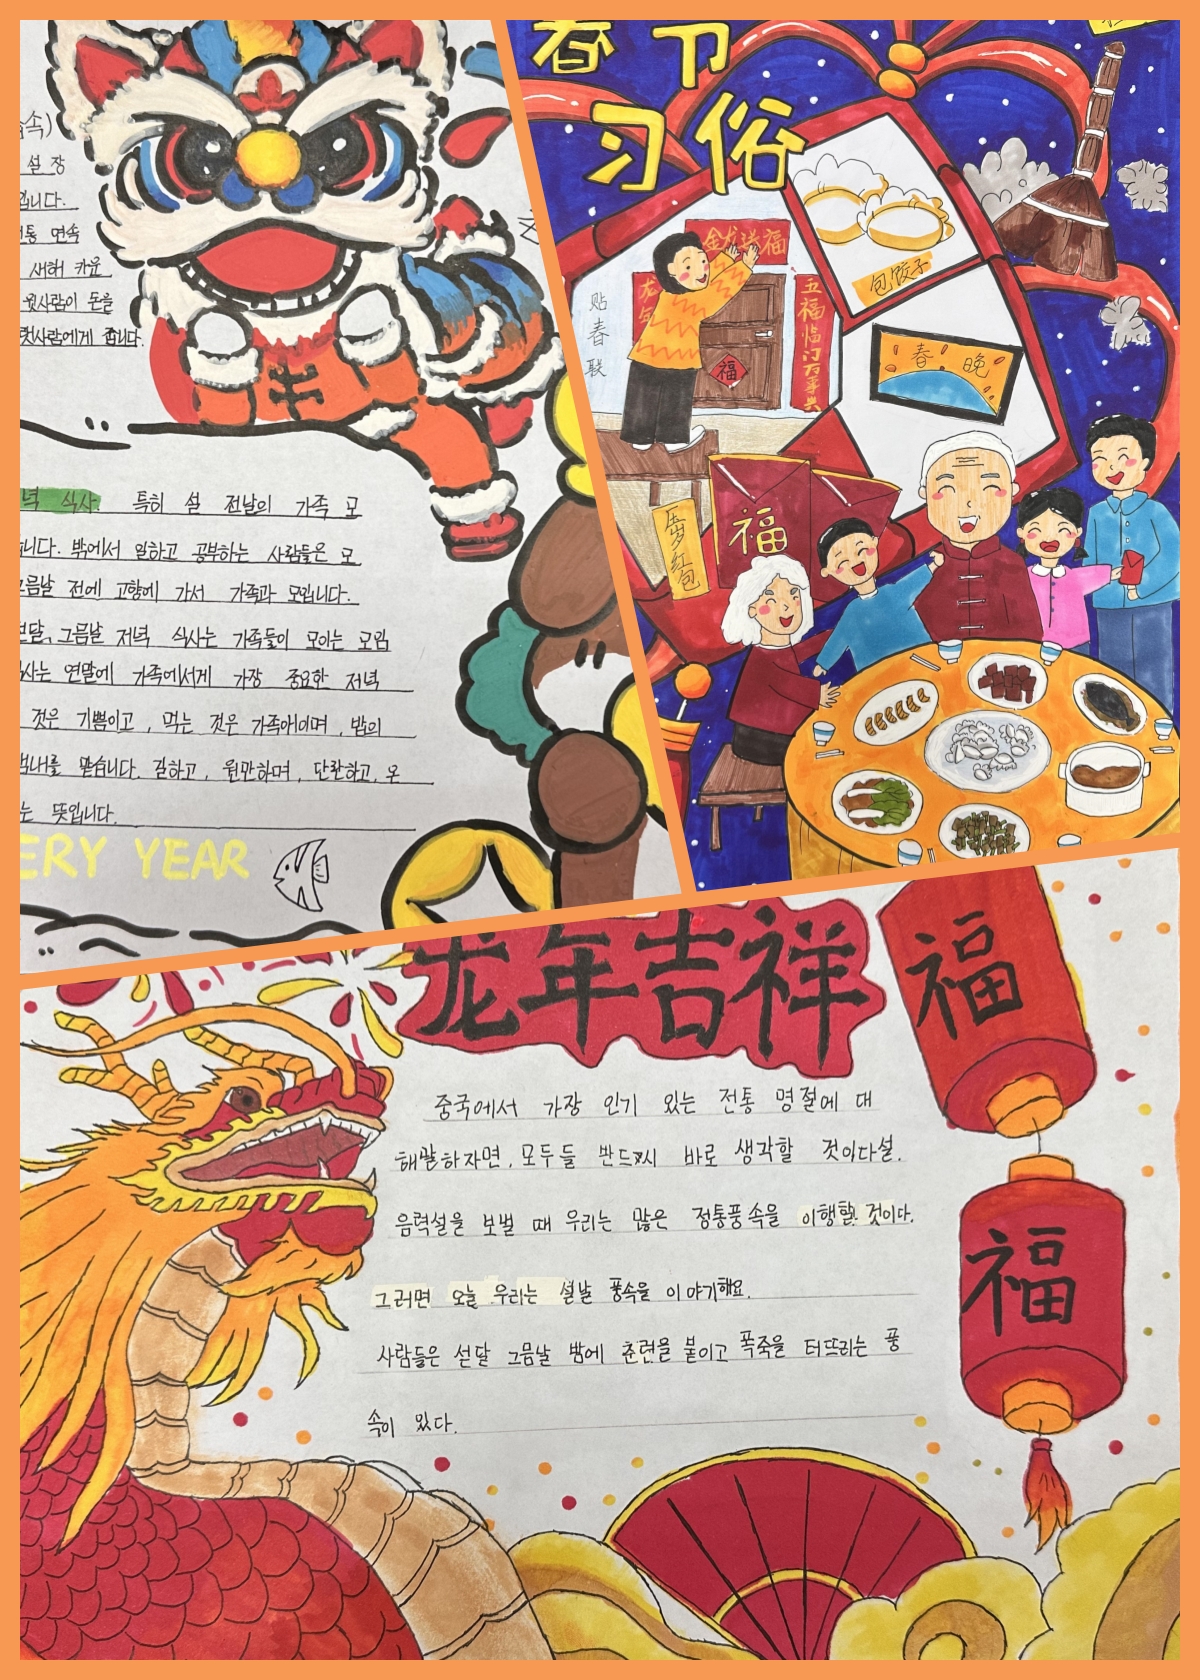 속)
설 장
입니다.
통 연속
새해 카운
윗사람이 돈을
랫사람에게 줍니다.
녁 식사. 특히 설 전날의 가족 모
니다. 밖에서 일하고 공부하는 사람들은 모
그믐날 전에 고향에 가서 가족과 모입니다.
섣달, 그믐날 저녁 식사는 가족들이 모이는 모임
식사는 연말에 가족에서게 가장 중요한 저녁
것은 기쁨이고, 먹는 것은 가족애이며, 밥의
믿습니다. 길하고, 원만하며, 단란하고, 오
는 뜻입니다.
ERY YEAR
春节
习俗
包饺子
金龙送福
龙年
五福临门万事兴
福
贴春联
春晚
压岁红包
福
龙年吉祥
福
福
중국에서 가장 인기 있는 전통 명절에 대
해말하자면, 모두들 반드시 바로 생각할 것이다설.
음력설을 보낼 때 우리는 많은 정통풍속을 이행할 것이다.
그러면 오늘 우리는 설날 풍속을 이야기해요.
사람들은 섣달 그믐날 밤에 춘련을 붙이고 폭죽을 터뜨리는 풍
속이 있다.